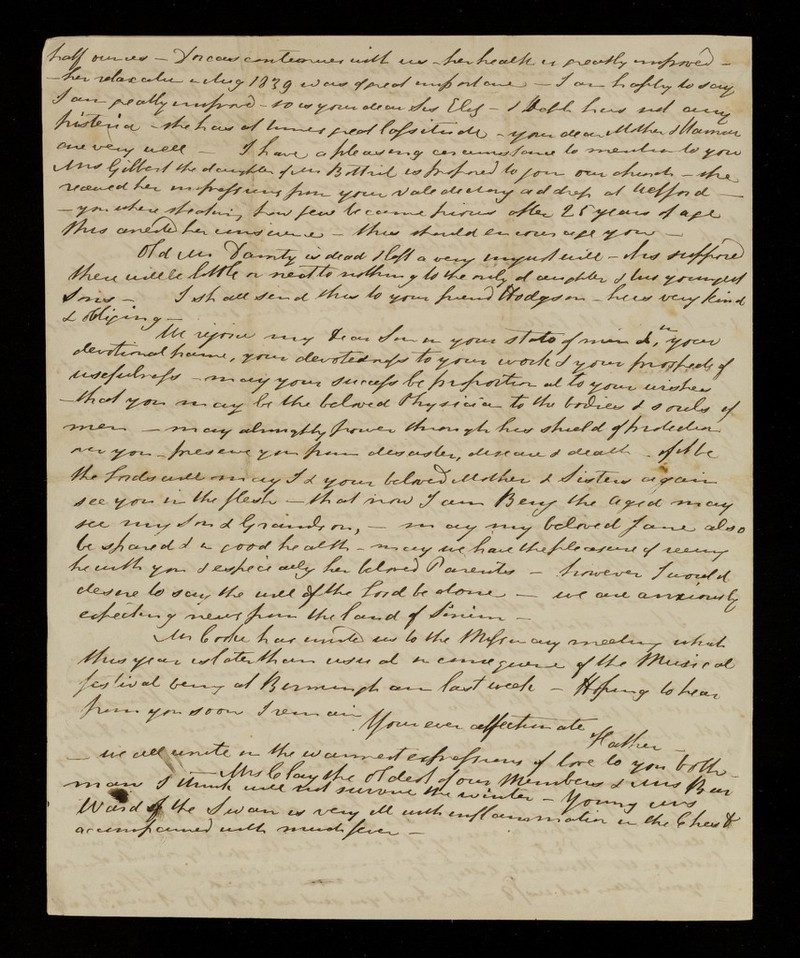 half ounces — Dorcas continues with us – her health is greatly improved –
– her relaxation in Aug 1839 was of great importance — I am happy to say
I am greatly improved – so is your dear Sis Eliz – & hath had not any
histeria – she has at times great lassitude – your dear Mother & Maman
are very well — I have a pleasing circumstance to mention to you
Mrs Gilbert the daughter of Mr Bottril is proposed to join our church – she
received her impressions from your valedictory address at Welford —
– you where stating how few become pious after 25 years of age
this arrested her conscience – this should encourage you —
Old Mr Dainty is dead & left a very unjust will – it is supposed
there will be little or next to nothing to the only daughter & his youngest
Sons — I shall send this to your friend Hodgson – he is very kind
& obliging —
We rejoice my Dear Son in your state of mind, in your
devotional frame, your devotedness to your work & your prospects of
usefulness – may your success be proportional to your wishes
– that you may be the beloved Physician to the bodies & souls of
men – may almighty power through his shield of protection
over you – preserve you from disaster, disease & death – if it be
the Lords will may I & your beloved Mother & Sisters again
see you in the flesh — that now I am Benj the aged may
see my Son & Grandson, – may my beloved Jane also
be spared & in good health – may we have the pleasure of seeing
he with you & especially her beloved Parents – however I would
desire to say the will of the Lord be done – we are anxiously
expecting news from the land of Sinim –
Mr Cooke has invited us to the Missionary meeting which
this year is later than usual in consequence of the Musical
festival being at Birmingham last week – Hoping to hear
from you soon I remain
Your ever affectionate Father –
– we all unite in the warmest expressions of love to you both –
– Mrs Clay the oldest of our Members & Mrs Bur
man I think will not survive the winter – Young Mrs
Ward of the Swan is very ill with inflammation in the Chest &
accompanied with much fever –